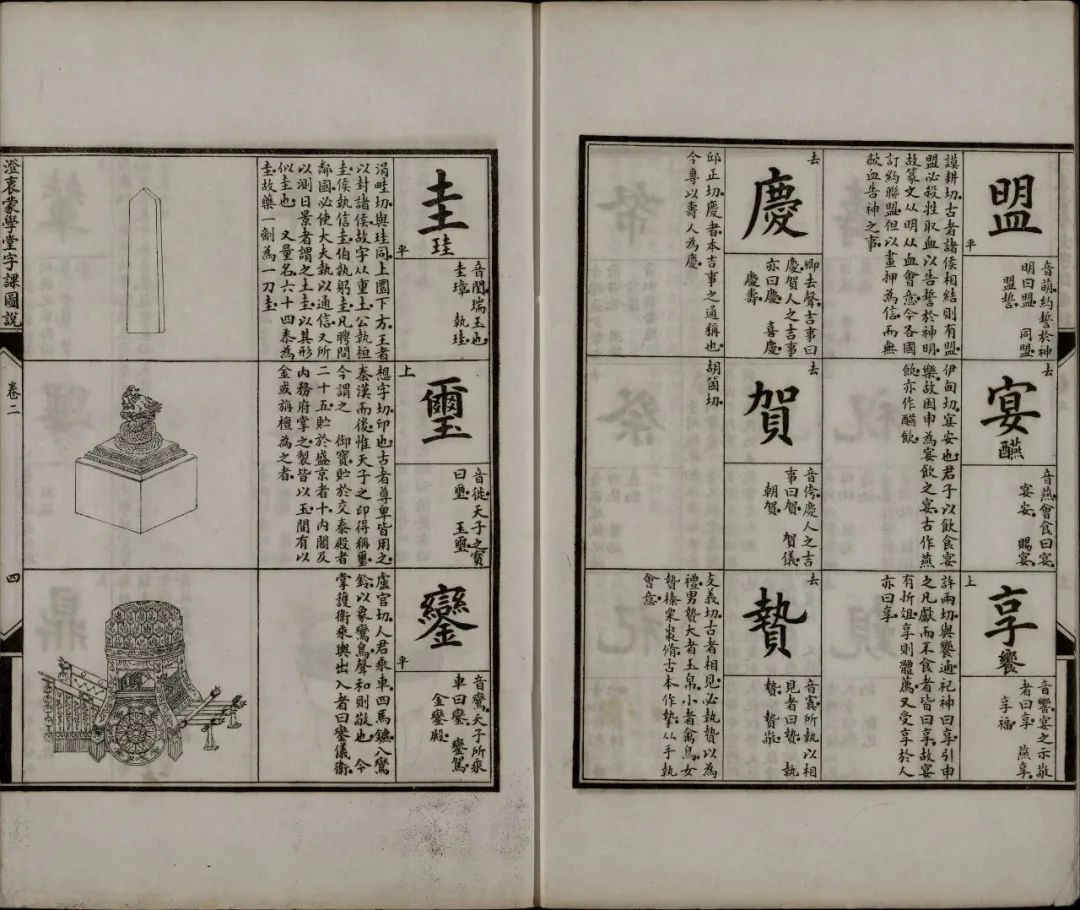 盟
平
音萌約誓於神
明曰盟 同盟
盟誓
謨耕切古者諸侯相結則有盟
盟必殺牲取血以告誓於神明
故篆文从明从血會意今各國
訂約聯盟但以畫押為信而無
歃血告神之事
去
宴
醼
音燕會食曰宴
宴安 賜宴
伊甸切宴安也君子以飲食宴
樂故因申為宴飲之宴古作燕
飲亦作醼飲
上
享
饗
音響宴之示敬
者曰享 燕享
享福
許兩切與饗通祀神曰享引申
之凡獻而不食者皆曰享故宴
有折俎享則體薦又受享於人
亦曰享
去
慶
卿去聲吉事曰
慶賀人之吉事
亦曰慶 喜慶
慶壽
邱正切慶者本吉事之通稱也
今專以壽人為慶
去
賀
音 慶人之吉
事曰賀 賀儀
朝賀
胡箇切
去
贄
音寘所執以相
見者曰贄 執
贄 贄敬
支義切古者相見必執贄以為
禮男贄大者玉帛小者禽鳥女
贄榛栗棗脩古本作摯从手執
會意
圭
珪
平
音閨瑞玉也
圭璋 執珪
涓畦切與珪同上圜下方王者
以封諸侯故字从重土公執桓
圭侯執信圭伯執躬圭凡聘問
鄰國必使大夫執以通信又所
以測日景者謂之土圭以其形
似圭也 又量名六十四黍為
圭故藥一劑為一刀圭
上
璽
音徙天子之寶
曰璽 玉璽
想字切印也古者尊卑皆用之
秦漢而後惟天子之印得稱璽
今謂之 御寶貯於交泰殿者
二十五貯於盛京者十內閣及
內務府掌之製皆以玉間有以
金或旃檀為之者
鑾
平
音鸞天子所乘
車曰鑾 鑾駕
金鑾殿
盧官切人君乘車四馬鑣八鸞
鈴以象鸞鳥聲和則敬也 今
掌護衛乘輿出入者曰鑾儀衛
澄衷蒙學堂字課圖說
卷二
四